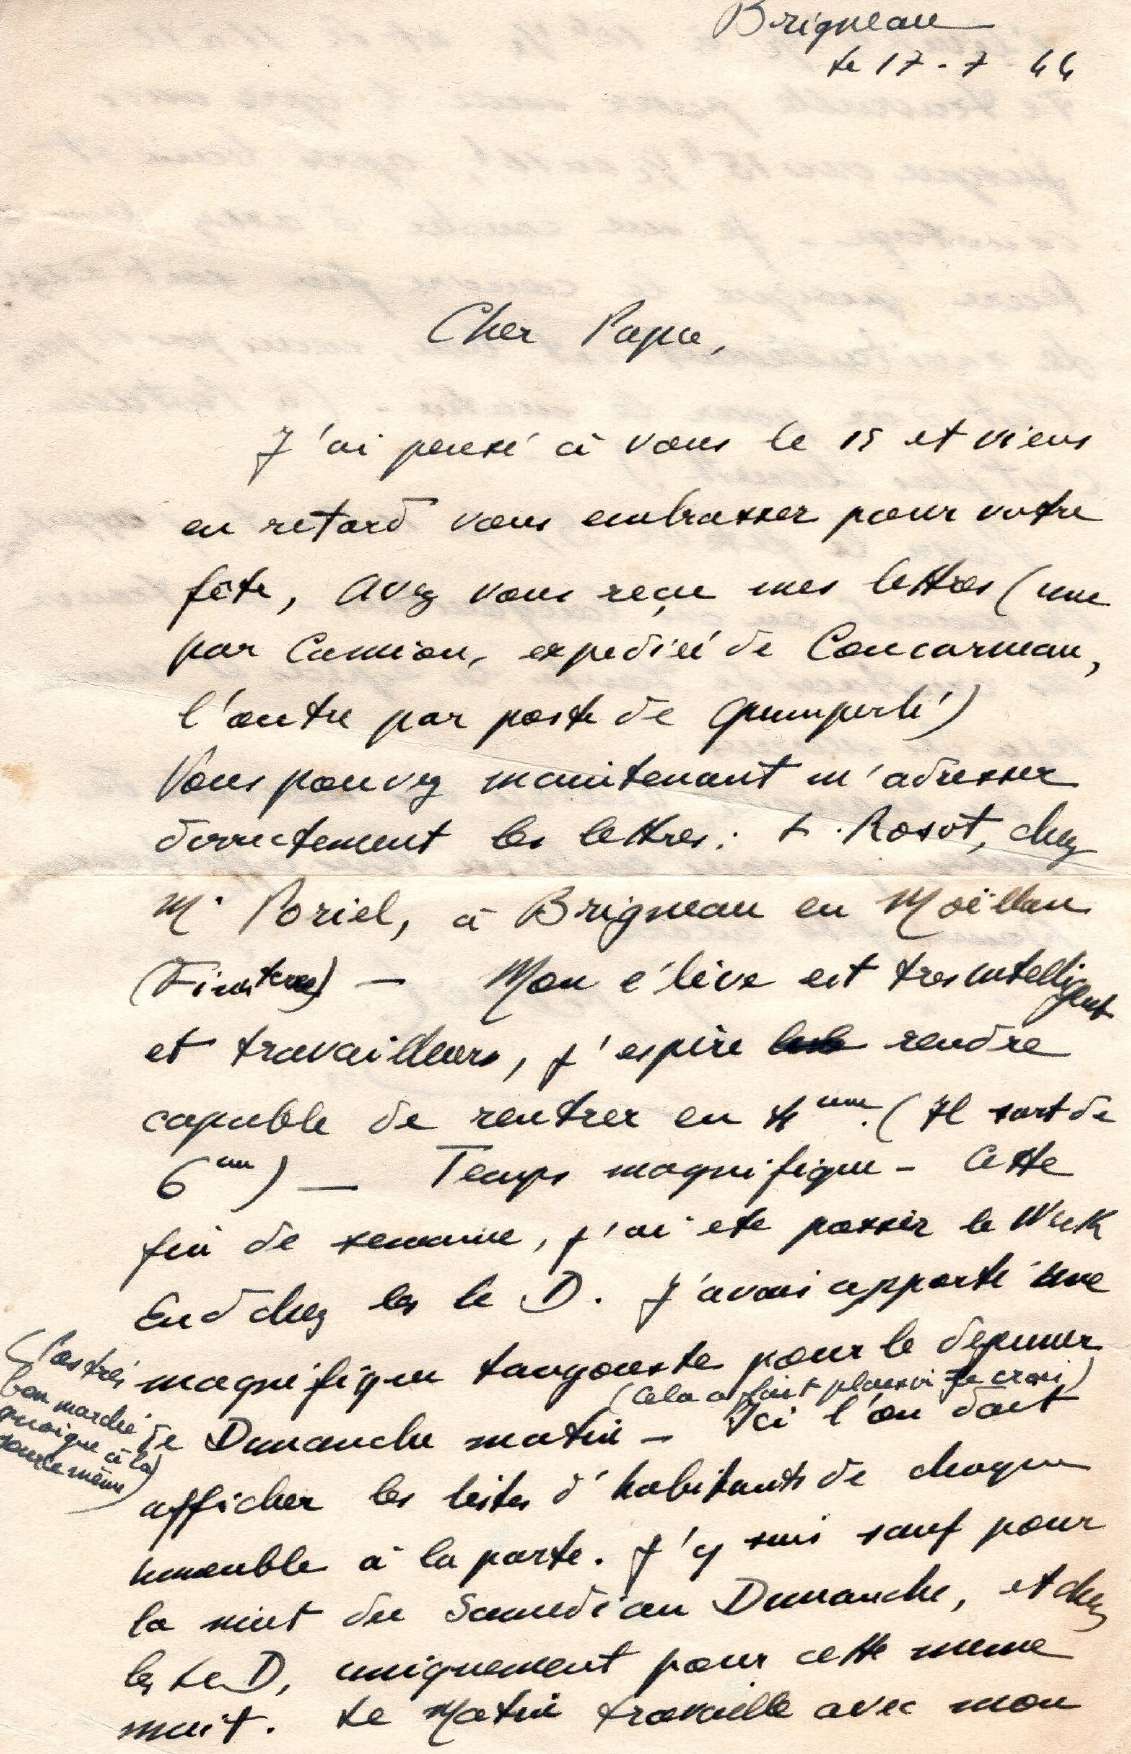 Brigneau
le 17-7 44
Cher Papa,
J'ai pensé à vous le 15 et viens
en retard vous embrasser pour votre
fête, Avez vous reçu mes lettres (une
par Camion, expediée de Concarneau,
l'autre par poste de Quimperlé)
Vous pouvez maintenant m'adresser
directement les lettres : L. Rosot, chez
Mr Poriel, à Brigneau en Moëllan
(Finistere) — Mon élève est tres intelligent
et travailleurs, j'espère rendre
capable de rentrer en 4eme. (Il sort de
6eme) — Temps magnifique - Cette
fin de semaine, j'ai ete passer le Week
End chez les le D. J'avais apporté une
magnifique langouste pour le dejeuner
(Cela a fait plaisir je crois)
(Pas très
bon marché
quoique à la
source même)
de Dimanche matin - Ici l'on doit
afficher les listes d'habitants de chaque
immeuble à la porte. J'y suis sauf pour
la nuit du Samedi au Dimanche, et chez
les Le D, uniquement pour cette meme
nuit. Le Matin travaille avec mon